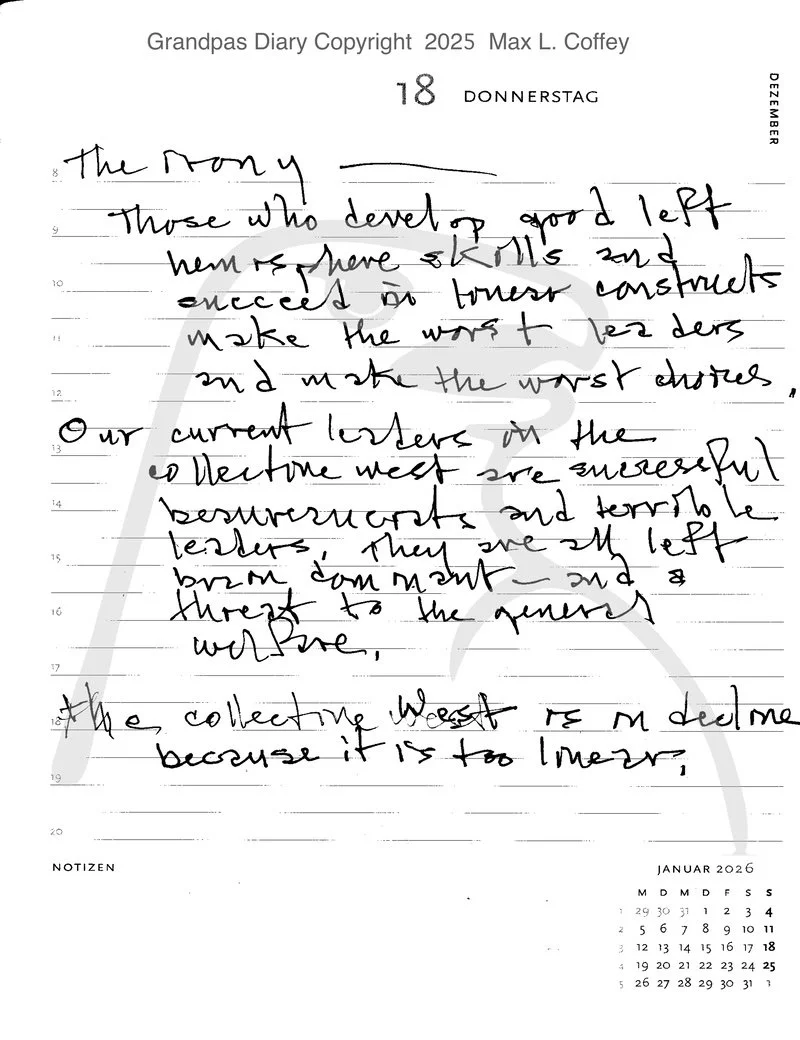 Grandpas Diary Copyright 2025 Max L. Coffey
18 DONNERSTAG
DEZEMBER
8 The Irony
Those who develop good left
9
hemisphere skills and
10
succeed in linear constructs
11 make the worst leaders
and make the worst choices,
12
Our current leaders in the
13
collective west are successful
14
beaureaucrats and terrible
leaders, They are all left
15
brain dominant — and a
16 threat to the general
welfare,
17
18 The collective West is in decline
because it is too linear,
19
20
NOTIZEN
JANUAR 2026
M D M D F S S
1 29 30 31 1 2 3 4
2 5 6 7 8 9 10 11
3 12 13 14 15 16 17 18
4 19 20 21 22 23 24 25
5 26 27 28 29 30 31 1